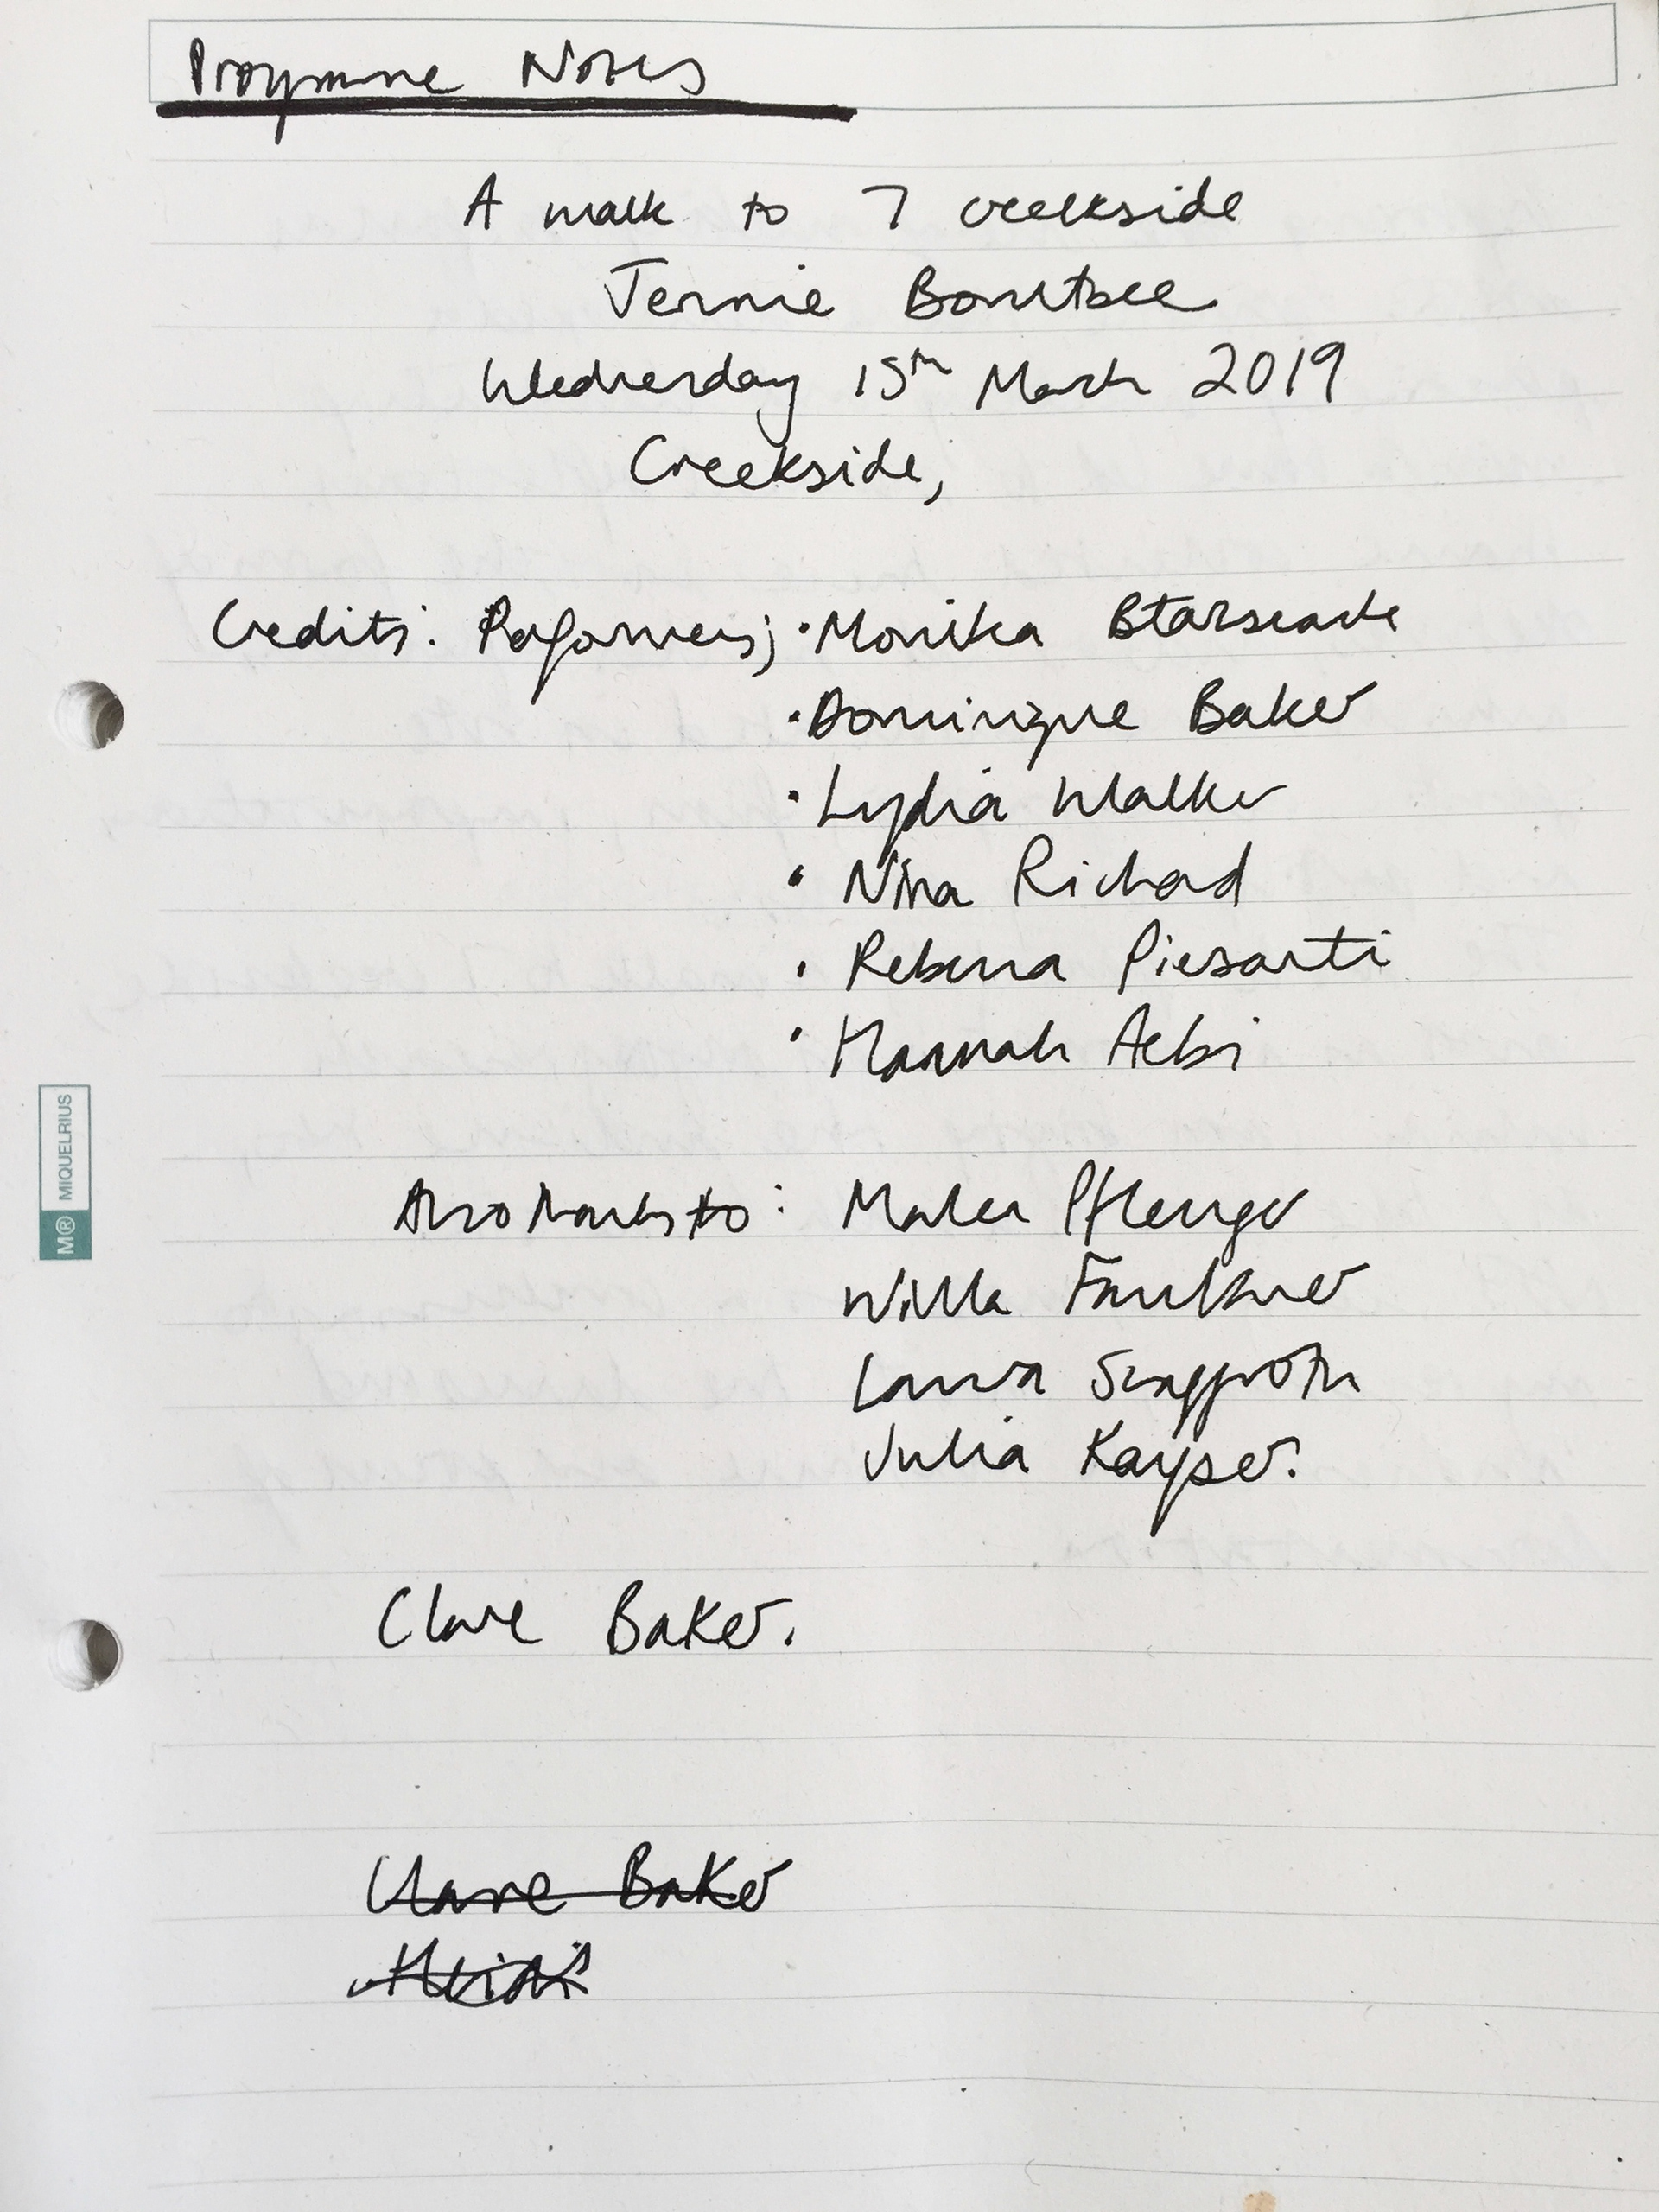 Programme Notes
A walk to 7 creekside
Jennie Boultbee
Wednesday 15th March 2019
Creekside,
Credits: Performers; · Monika
· Dominique Baker
· Lydia Walker
· Nina Richard
· Rebecca Piersanti
· Hannah Aebi
Also thanks to: Malen Pflenger
Willa Faulkner
Laura
Julia Kayser.
M® MIQUELRIUS
Clare Baker.
Clare Baker
Heidi